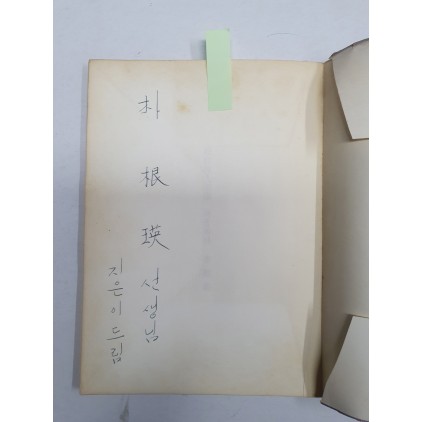 朴根瑛 선생님
지은이 드림